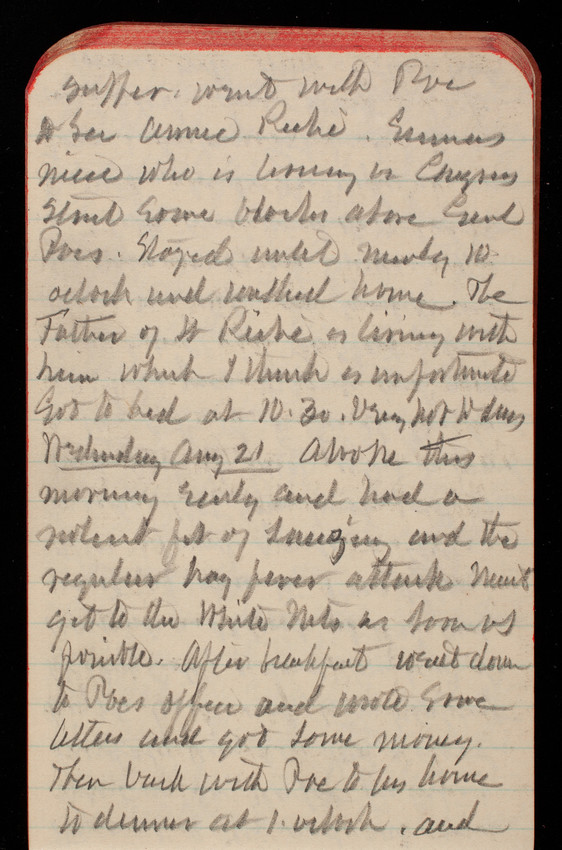 supper. went with Poe
to See Annie Riché. Emmas
niece who is living in Congress
Street Some blocks above Genl
Poes. Stayed until nearly 10
oclock and walked home. The
Father of Lt Riché is living with
him which I think is unfortunate
Got to bed at 10.30. Very hot to day
Wednesday Aug 21 Awoke this
morning Early and had a
violent fit of Sneezing and the
regular hay fever attack Must
get to the White Mts as soon as
possible. After breakfast went down
to Poes office and wrote Some
letters and got some money.
Then back with Poe to his home
to dinner at 1. oclock. and